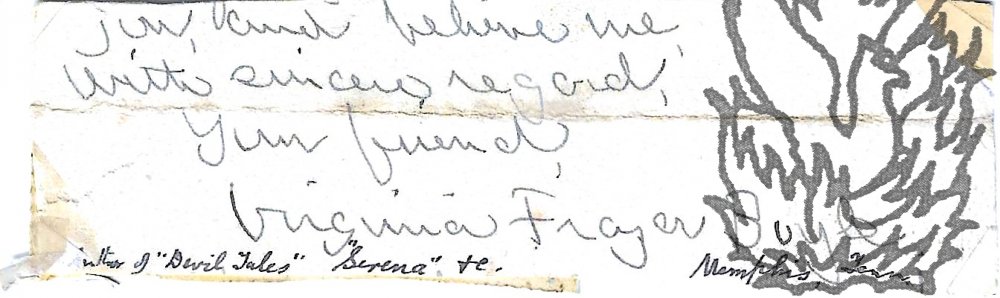 you, and believe me,
With sincere regard,
Your friend,
Virginia Frazer Boyle
Author of "Devil Tales" "Serena" &c. Memphis, Tenn.